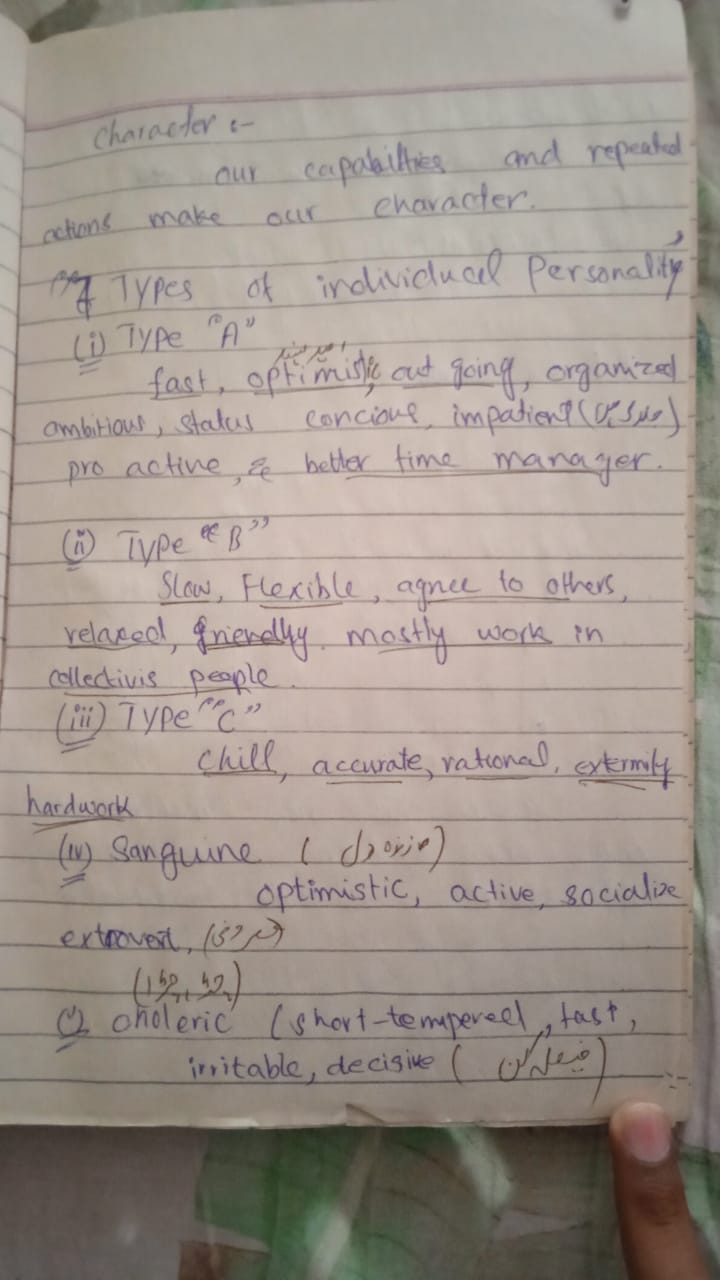 Character :-
our capabilties and repeated
actions make our character.
Types of individual Personality
(i) Type "A"
fast, optimistic, out going, organized
ambitious, status concious, impatient (
pro active, & better time manager.
(ii) Type "B"
Slow, Flexible, agree to others,
relaxed, friendly. mostly work in
collectivis people.
(iii) Type "C"
Chill, accurate, rational, extermily
hardwork
(iv) Sanguine (
optimistic, active, socialize
extrovert,
(چڑ چڑا)
choleric (short-tempered, fast,
irritable, decisive (فیصلہ کن)